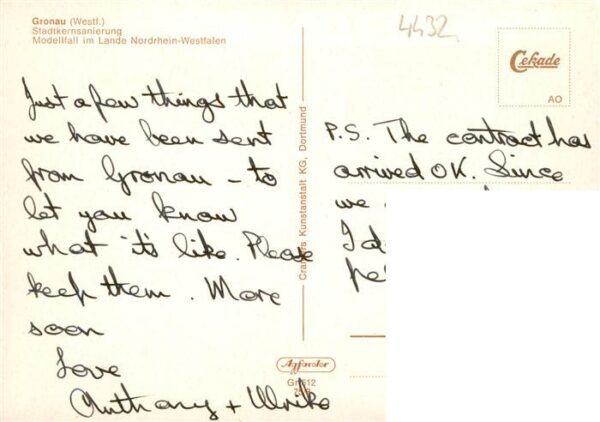 Gronau (Westf.)
Stadtkernsanierung
Modellfall im Lande Nordrhein-Westfalen
4432
Cekade
AO
Just a few things that
we have been sent
from Gronau - to
let you know
what it's like. Please
keep them. More
soon
Love
Anthony + Ulrike
Cramers Kunstanstalt KG, Dortmund
P.S. The contract has
arrived OK. Since
we
I d
pe
Gr